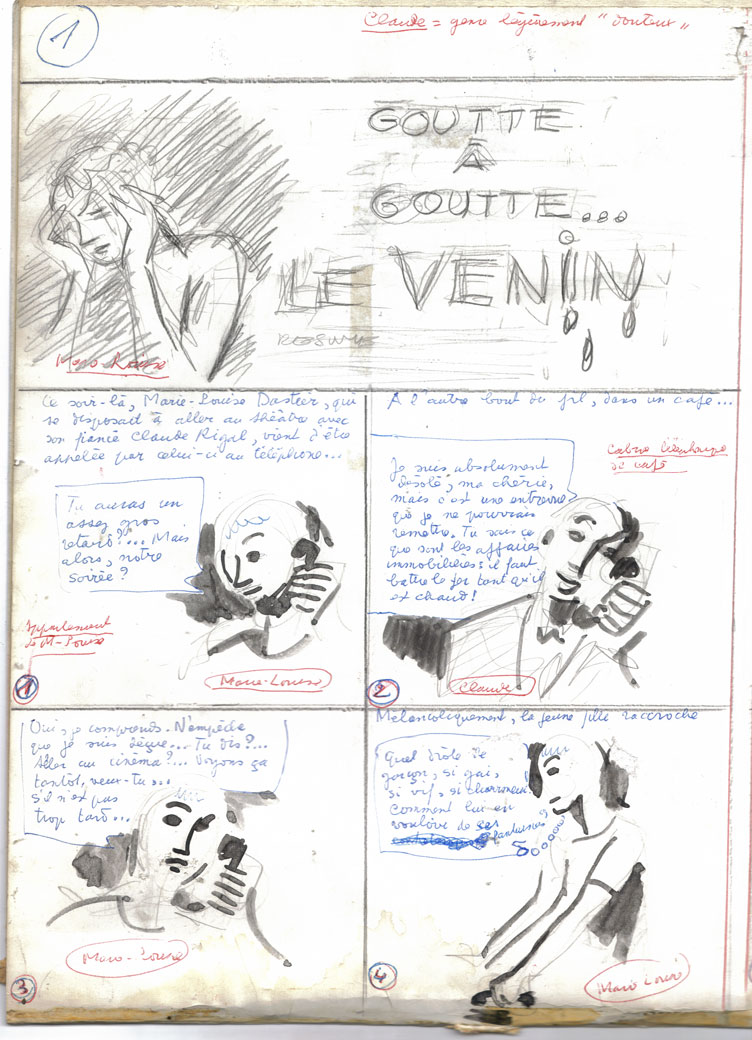 1
Claude = genre légèrement "douteux"
GOUTTE
À
GOUTTE...
LE VENIN
Ce soir-là, Marie-Louise Dastier, qui
se disposait à aller au théâtre avec
son fiancé Claude Rigal, vient d'être
appelée par celui-ci au téléphone...
Tu auras un
assez gros
retard?... Mais
alors, notre
soirée?
Appartement
de M-Louise
Marie-Louise
1
A l'autre bout du fil, dans un café...
Cabine téléphonique
de café
Je suis absolument
désolé, ma chérie,
mais c'est une entrevue
que je ne pourrais
remettre. Tu sais ce
que sont les affaires
immobilières: il faut
battre le fer tant qu'il
est chaud!
Claude
2
Oui, je comprends. N'empêche
que je suis déçue... Tu dis?...
Aller au cinéma?... Voyons ça
tantôt, veux-tu...
s'il n'est pas
trop tard...
3
Mélancoliquement, la jeune fille raccroche
Quel drôle de
garçon, si gai,
si vif, si charmeur.
Comment lui en
vouloir de ses
fantaisies?
4